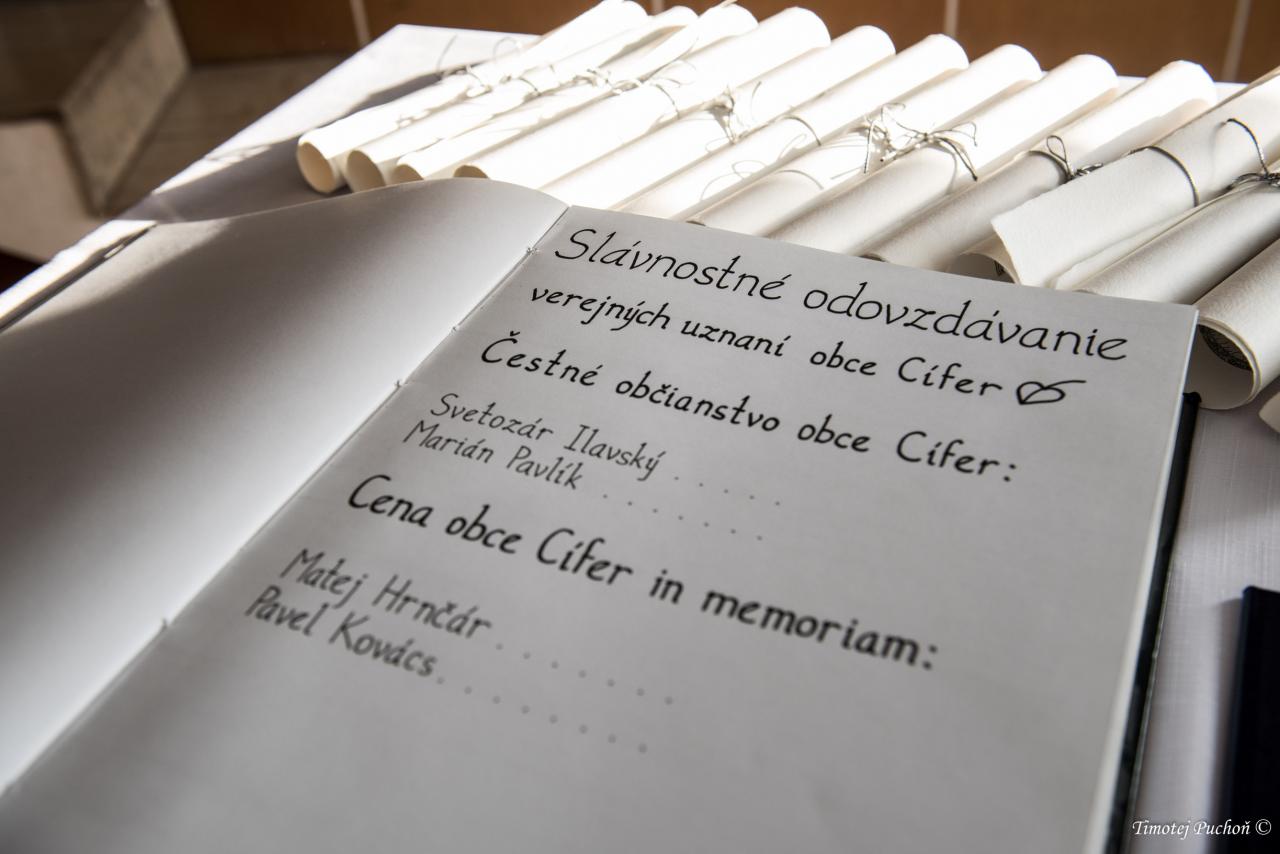 Slávnostné odovzdávanie
verejných uznaní obce Cífer
Čestné občianstvo obce Cífer:
Svetozár Ilavský . . . . . .
Marián Pavlík . . . . . . .
Cena obce Cífer in memoriam:
Matej Hrnčár . . . . . . .
Pavel Kovács. . . . . . . .
Timotej Puchoň ©